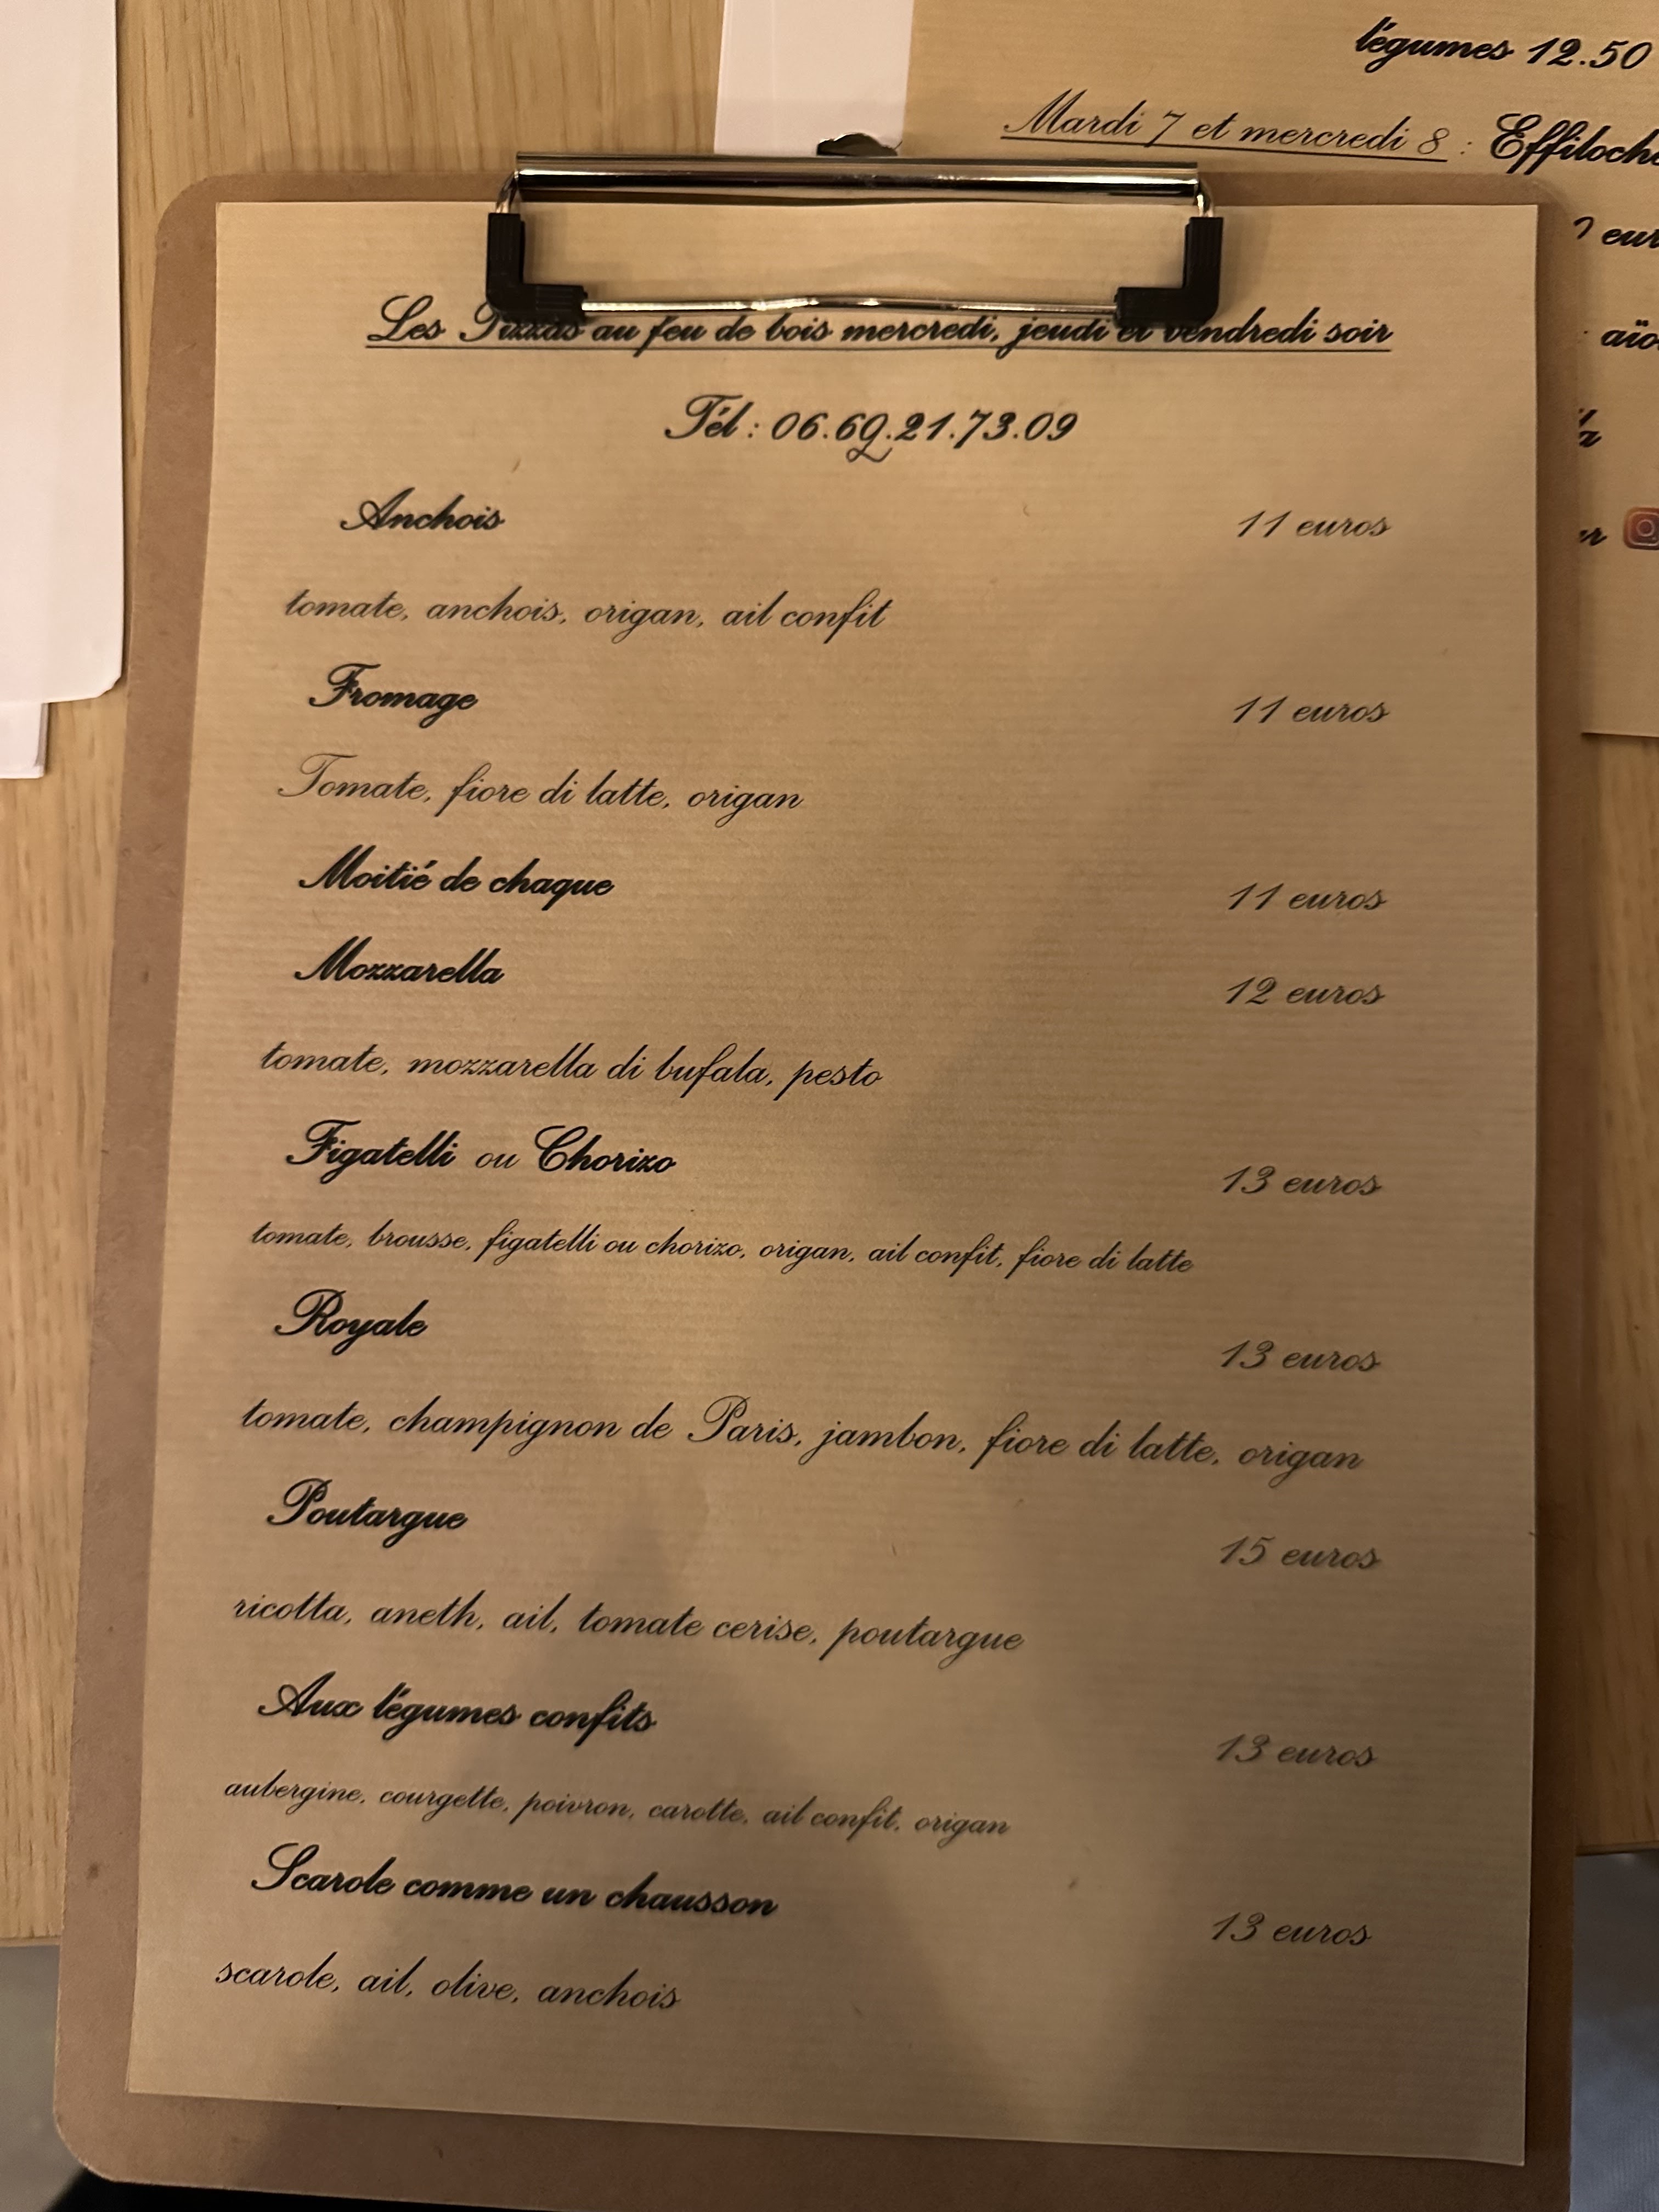 légumes 12.50
Mardi 7 et mercredi 8 :
Les Pizzas au feu de bois mercredi, jeudi et vendredi soir
Tél : 06.69.21.73.09
Anchois 11 euros
tomate, anchois, origan, ail confit
Fromage 11 euros
Tomate, fiore di latte, origan
Moitié de chaque 11 euros
Mozzarella 12 euros
tomate, mozzarella di bufala, pesto
Figatelli ou Chorizo 13 euros
tomate, brousse, figatelli ou chorizo, origan, ail confit, fiore di latte
Royale 13 euros
tomate, champignon de Paris, jambon, fiore di latte, origan
Poutargue 15 euros
ricotta, aneth, ail, tomate cerise, poutargue
Aux légumes confits 13 euros
aubergine, courgette, poivron, carotte, ail confit, origan
Scarole comme un chausson 13 euros
scarole, ail, olive, anchois